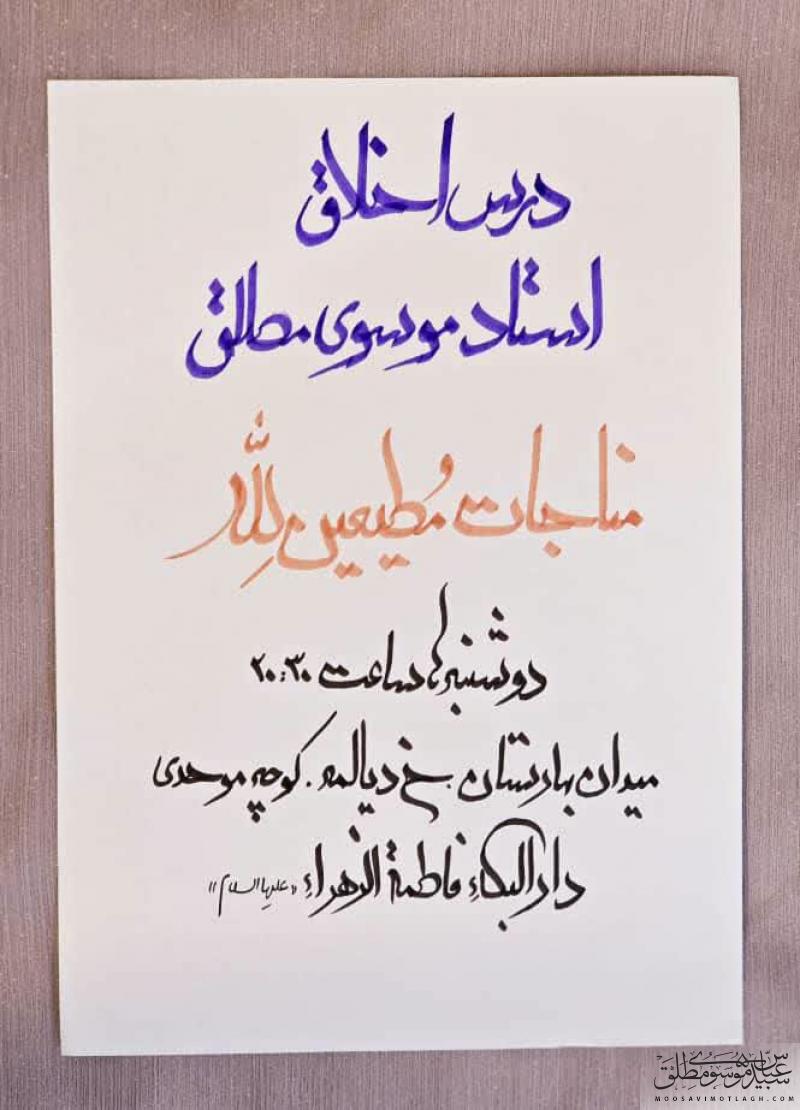 درس اخلاق
استاد موسوی مطلق
مناجات مُطیعین لِلّه
دوشنبه‌ها ساعت ۲۰:۳۰
میدان بهارستان. خ دیالمه. کوچه موحدی
دارالبکاءِ فاطمة الزهراءِ «علیها السلام»
سید عباس موسوی مطلق
MOOSAVIMOTLAGH.COM